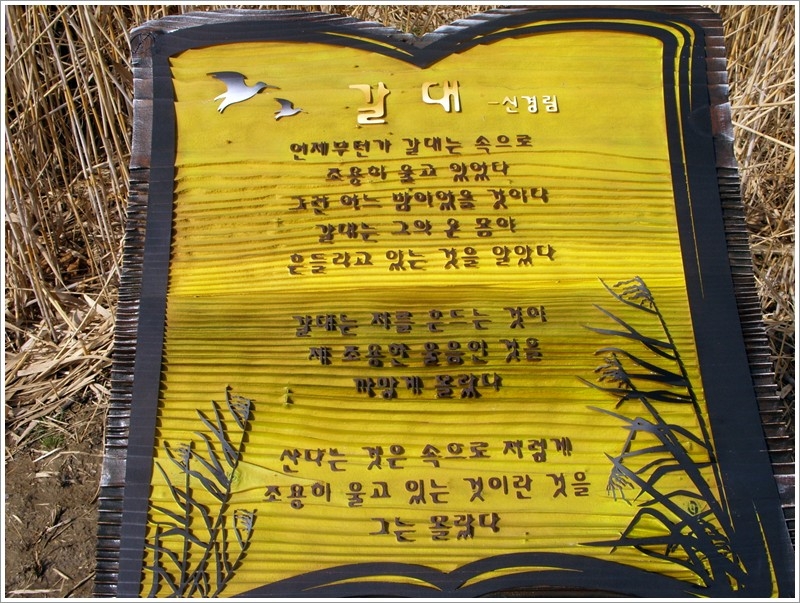 갈 대 -신경림
언제부턴가 갈대는 속으로
조용히 울고 있었다
그런 어느 밤이었을 것이다
갈대는 그의 온 몸이
흔들리고 있는 것을 알았다
갈대는 저를 흔드는 것이
제 조용한 울음인 것을
까맣게 몰랐다
산다는 것은 속으로 저렇게
조용히 울고 있는 것이란 것을
그는 몰랐다